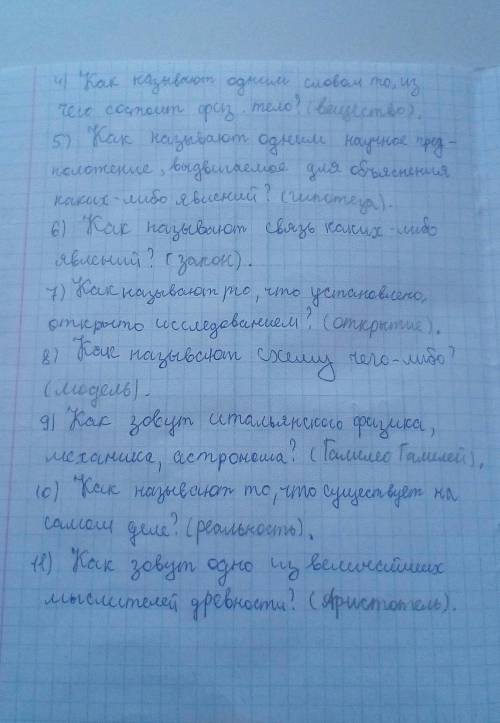 4) Как называют одним словом то, из
чего состоит физ. тело? (вещество).
5) Как называют одним научное пред-
положение, выдвигаемое для объяснения
каких-либо явлений? (гипотеза).
6) Как называют связь каких-либо
явлений? (закон).
7) Как называют то, что установлено,
открыто исследованием? (открытие).
8) Как называют схему чего-либо?
(модель).
9) Как зовут итальянского физика,
механика, астронома? (Галилео Галилей).
10) Как называют то, что существует на
самом деле? (реальность).
11) Как зовут одно из величайших
мыслителей древности? (Аристотель).